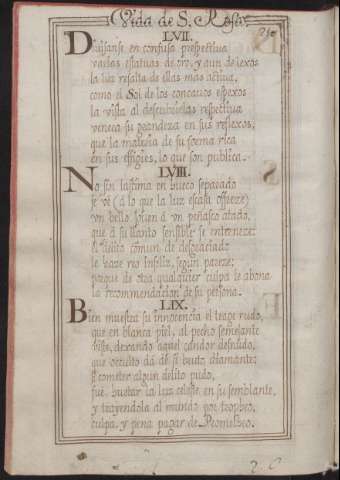 Vida de S. Rosa.
LVII.
Divisanse en confusa perspectiva
varias estatuas de oro, y aun de lexos
la luz resalta de ellas mas activa,
como el Sol de los concavos espexos
la vista al descubrirlas respectiva
venera su grandeza en sus reflexos,
que la materia de su forma rica
en sus effigies, lo que son publica.
LVIII.
No sin lastima en hueco separado
se vè (à lo que la luz escasa offreze)
un bello joven à un peñasco atado,
que à su llanto sensible se enterneze:
el delito comun de desgraciado
le haze reo infeliz, segun pareze;
porque de otra qualquier culpa le abona
la recomendacion de su persona.
LIX.
Bien muestra su innocencia el trage rudo,
que en blanca piel, al pecho semejante
viste, dexando aquel candor desnudo,
que oculto dà de sì bruto diamante:
cometer algun delito pudo,
fue, hurtar la luz celeste en su semblante,
y trayendola al mundo por tropheo,
culpa, y pena pagar de Prometheo.